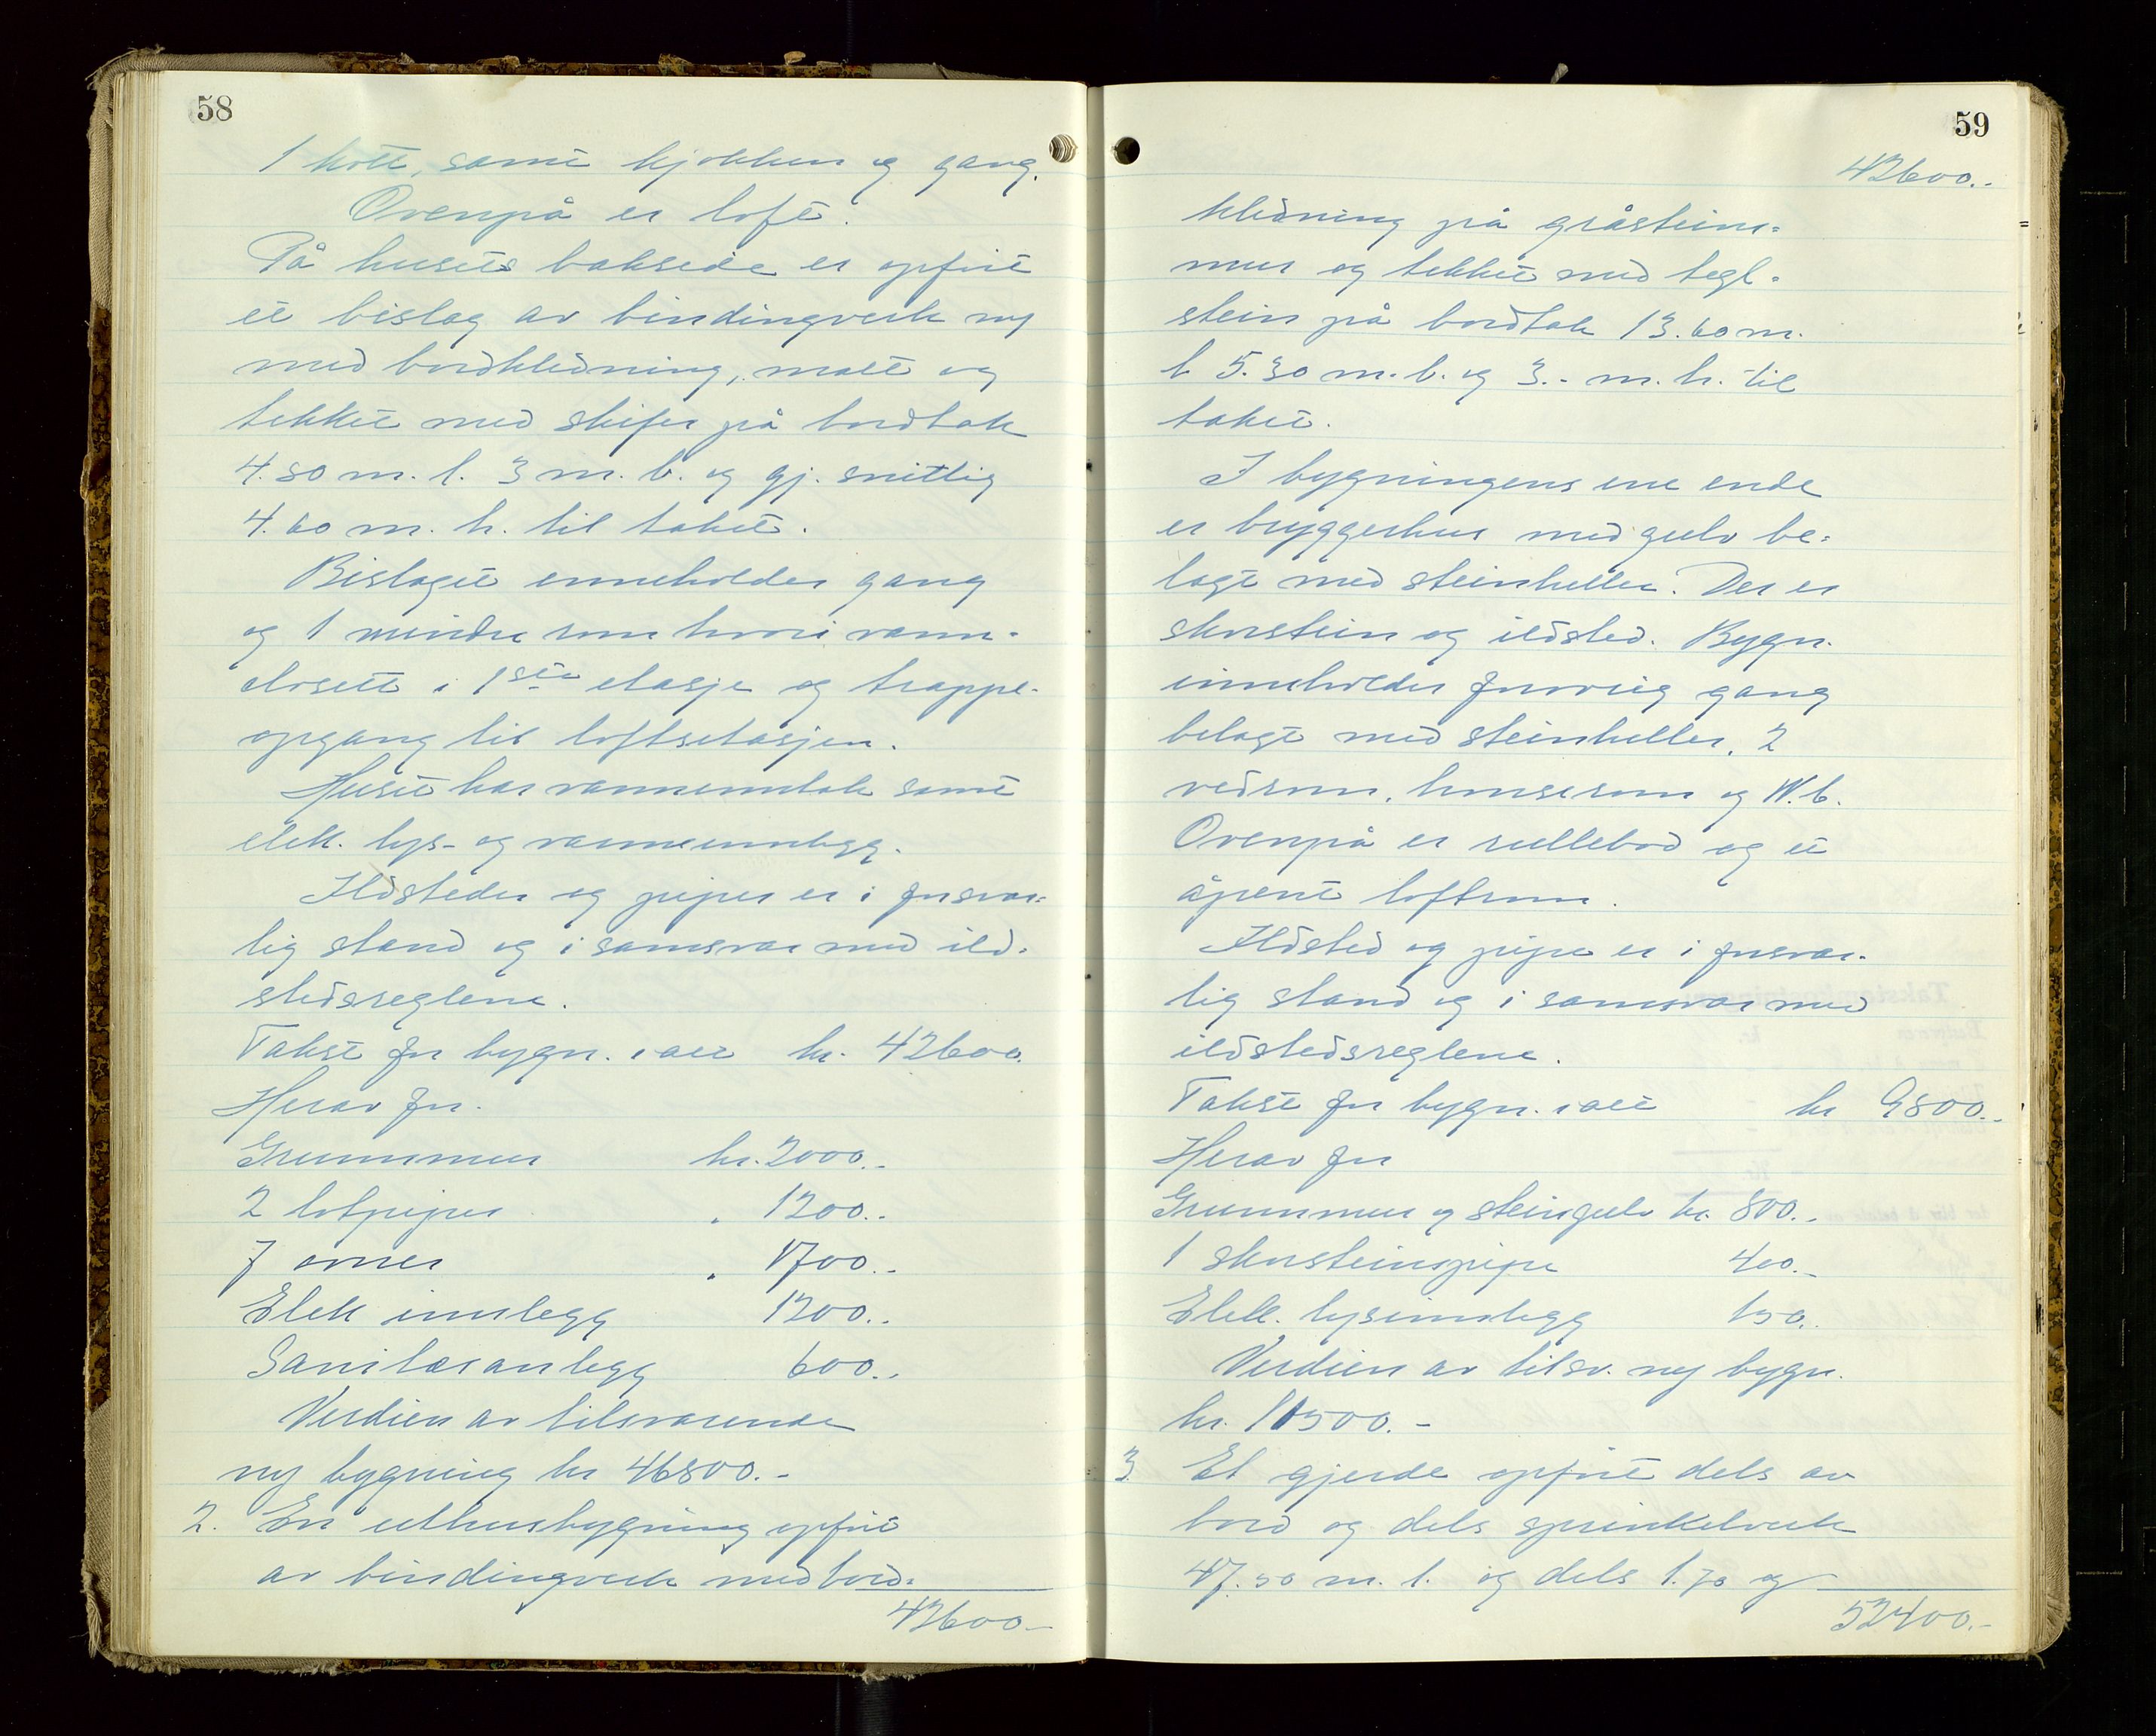 58
1 kott, samt kjøkken og gang.
Ovenpå er loft.
På husets bakside er opført
et bislag av bindingverk
med bordkledning, malt og
tekket med skifer på bordtak
4.80 m. l. 3 m. b. og gj. snitlig
4.60 m. h. til taket.
Bislaget inneholder gang
og 1 mindre rom hvori vann-
closett i 1ste etasje og trappe-
opgang til loftsetasjen.
Huset har vanninntak samt
elek. lys- og varmeinnlegg.
Ildsteder og piper er i forsvar-
lig stand og i samsvar med ild-
stedsreglene.
Takst for bygn. i alt kr. 42600.
Herav for
Grunnmur kr. 2000.-
2 løtpiper " 1200.-
7 ovner " 1700.-
Elek innlegg 1200.-
Sanitæranlegg 600.-
Verdien av tilsvarende
ny bygning kr 46800.-
2. En uthusbygning opført
av bindingverk med bord-
42600.-
59
42600.-
kledning på gråsteins-
mur og tekket med tegl-
stein på bordtak 13.60 m.
l. 5.30 m. b. og 3.- m. h. til
taket.
I bygningens ene ende
er bryggerhus med gulv be-
lagt med steinheller. Der er
skorstein og ildsted. Bygn.
inneholder forøvrig gang
belagt med steinheller, 2
vedrom, hønserom og W.C.
Ovenpå er rullebod og et
åpent loftrom.
Ildsted og pipe er i forsvar-
lig stand og i samsvar med
ildstedsreglene.
Takst for bygn. i alt kr 9800.-
Herav for
Grunnmur og steingulv kr. 800.-
1 skorsteinspipe 400.-
Elek. lysinnlegg 150.-
Verdien av tilsv. ny bygn.
kr. 11500.-
3. Et gjerde opført dels av
bord og dels sprinkelverk
47.50 m. l. og dels 1.70 og
52400.-